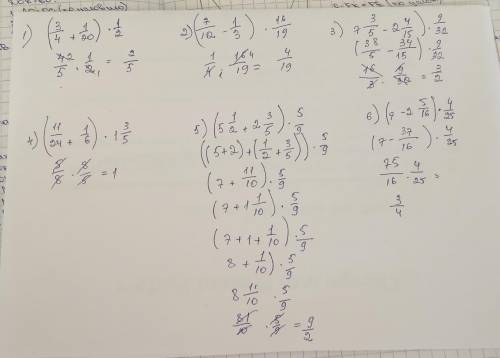 1) (3/4 + 1/20) · 1/2
4/5 · 1/2 = 2/5
2) (7/12 - 1/3) · 16/19
1/4 · 16/19 = 4/19
3) 7 3/5 - 2 4/15) · 9/32
(38/5 - 34/15) · 9/32
16/3 · 9/32 = 3/2
4) (11/24 + 1/6) · 1 3/5
5/8 · 8/5 = 1
5) (5 1/2 + 2 3/5) · 5/9
((5+2) + (1/2 + 3/5)) · 5/9
(7 + 11/10) · 5/9
(7 + 1 1/10) · 5/9
(7 + 1 + 1/10) · 5/9
8 + 1/10) · 5/9
8 11/10 · 5/9
81/10 · 5/9 = 9/2
6) (7 - 2 5/16) · 4/25
(7 - 37/16) · 4/25
75/16 · 4/25 =
3/4